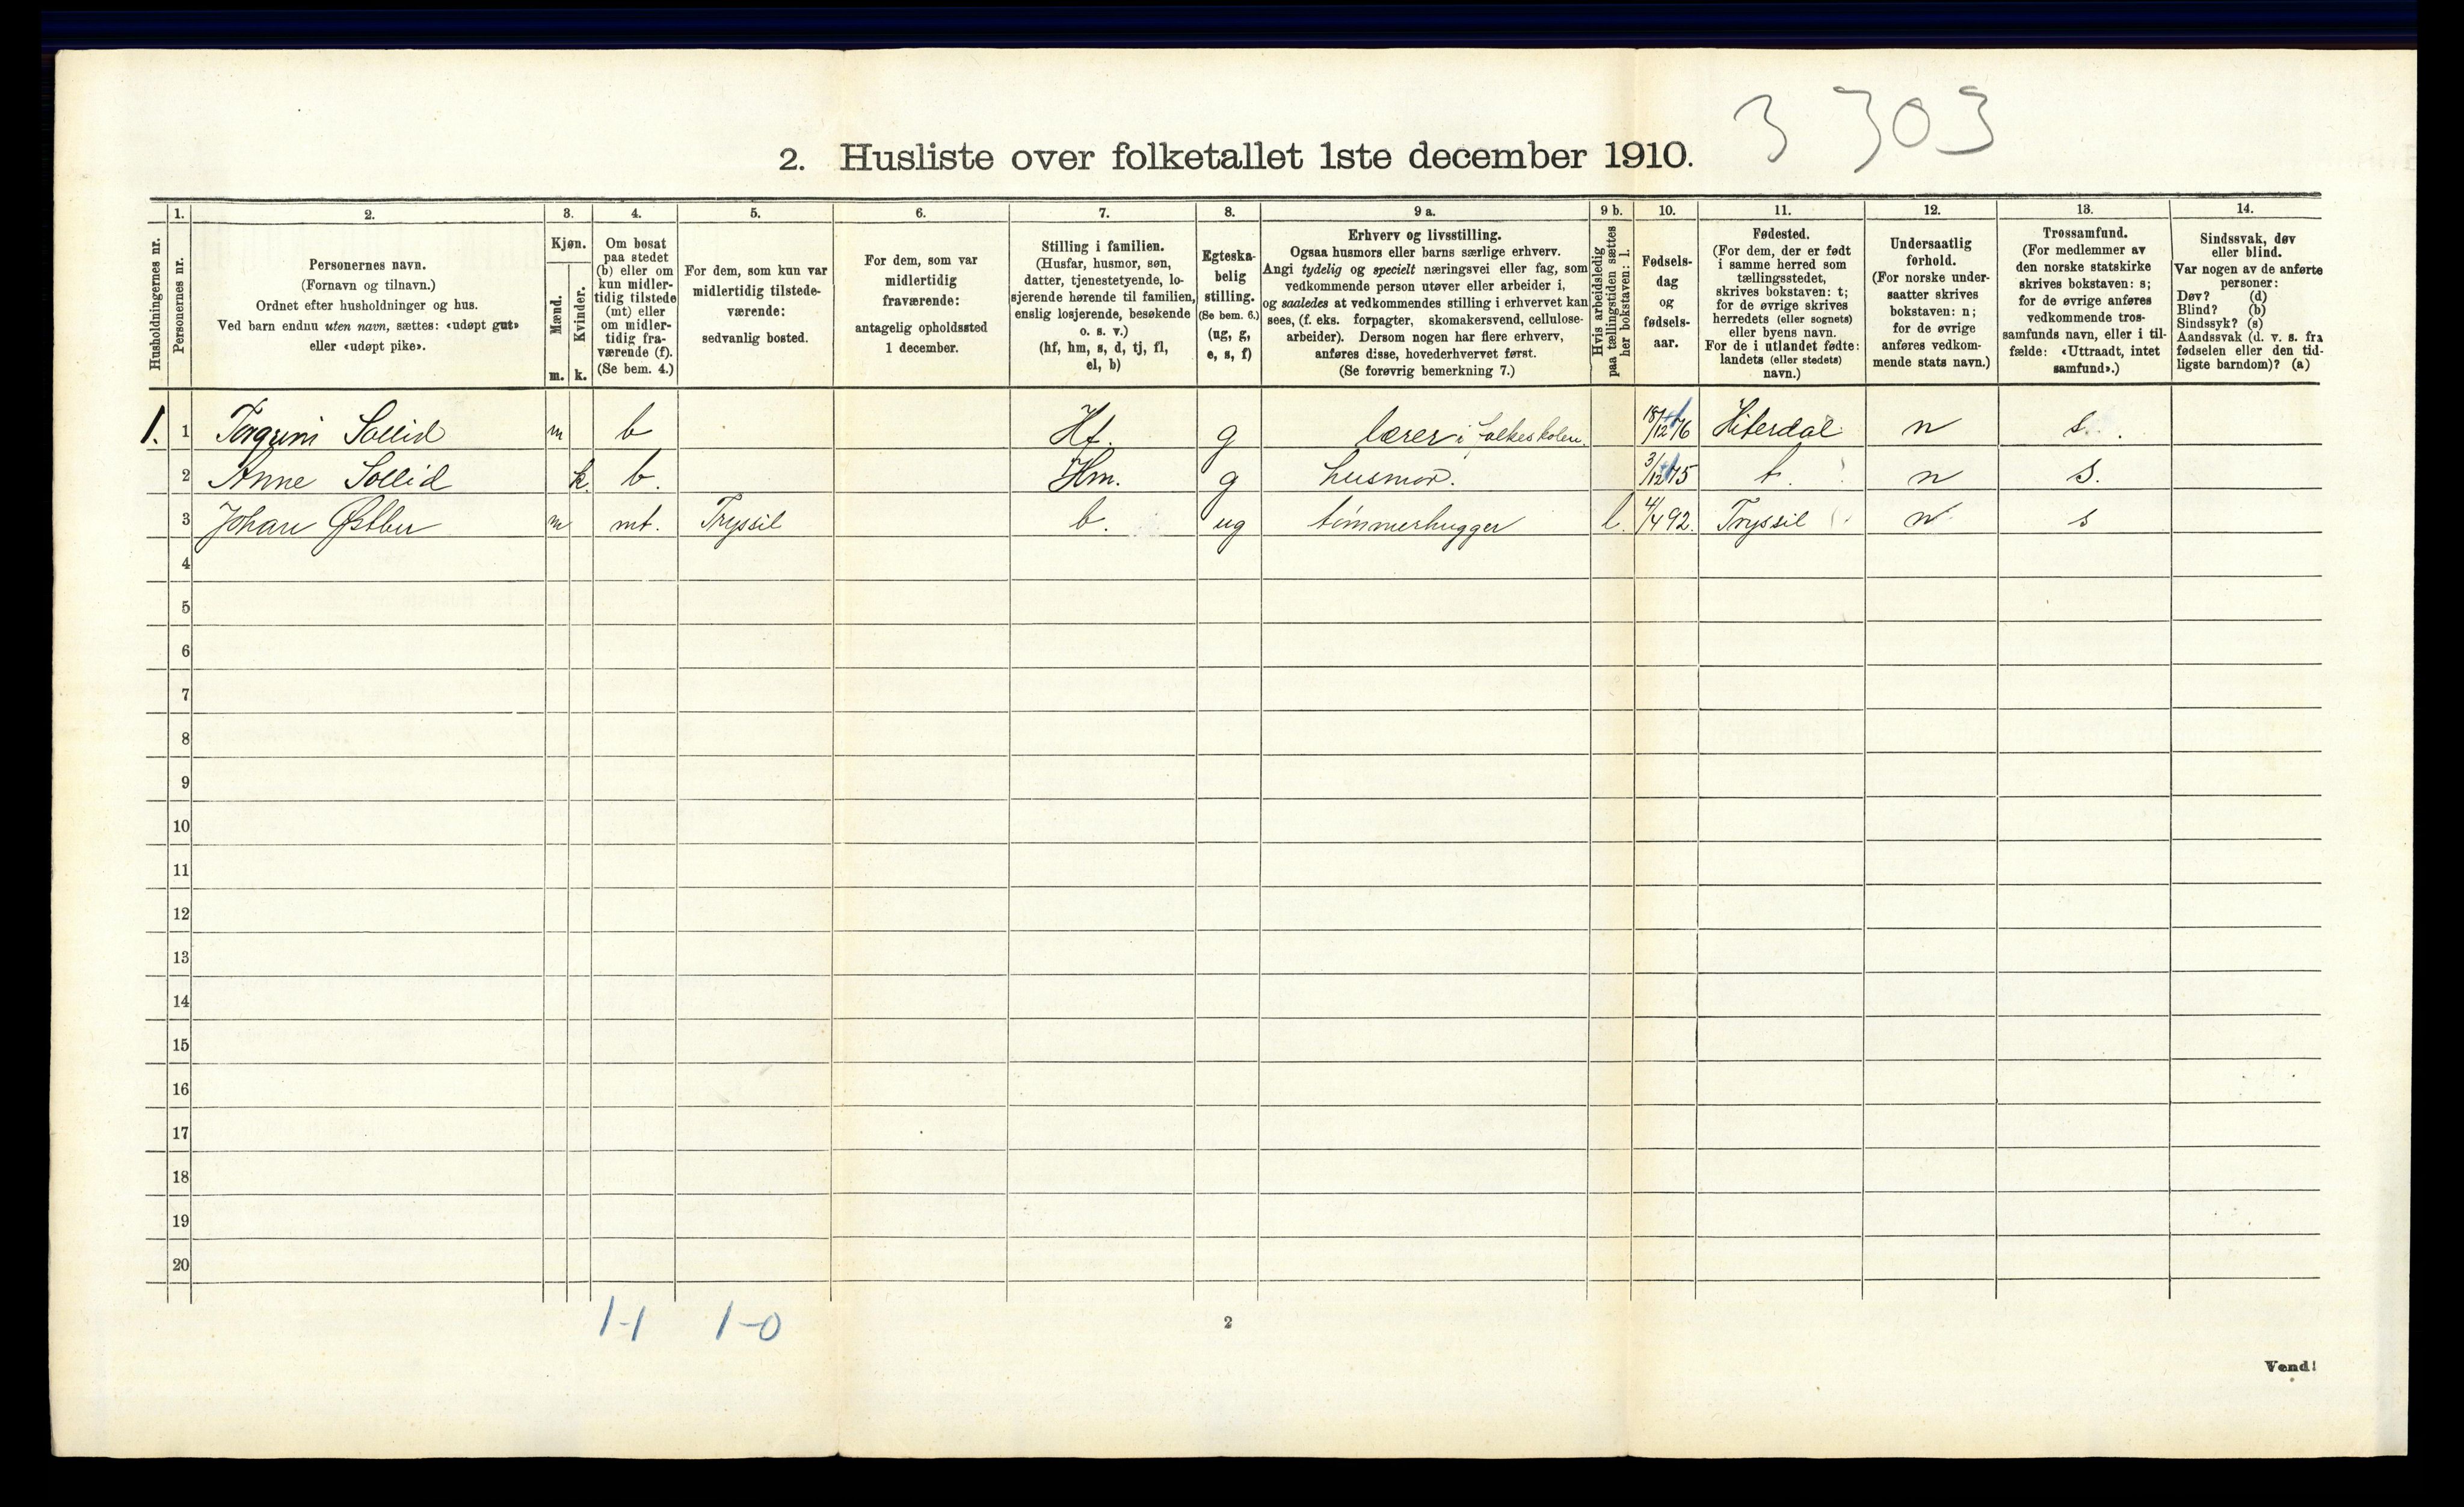 3 303
2. Husliste over folketallet 1ste december 1910.
Husholdningernes nr.
1.
Personernes nr.
2.
Personernes navn.
(Fornavn og tilnavn.)
Ordnet efter husholdninger og hus.
Ved barn endnu uten navn, sættes: «udøpt gut»
eller «udøpt pike».
3.
Kjøn.
Mænd.
Kvinder.
m. k.
4.
Om bosat
paa stedet
(b) eller om
kun midler-
tidig tilstede
(mt) eller
om midler-
tidig fra-
værende (f).
(Se bem. 4.)
5.
For dem, som kun var
midlertidig tilstede-
værende:
sedvanlig bosted.
6.
For dem, som var
midlertidig
fraværende:
antagelig opholdssted
1 december.
7.
Stilling i familien.
(Husfar, husmor, søn,
datter, tjenestetyende, lo-
sjerende hørende til familien,
enslig losjerende, besøkende
o. s. v.)
(hf, hm, s, d, tj, fl,
el, b)
8.
Egteska-
belig
stilling.
(Se bem. 6.)
(ug, g,
e, s, f)
9 a.
Erhverv og livsstilling.
Ogsaa husmors eller barns særlige erhverv.
Angi tydelig og specielt næringsvei eller fag, som
vedkommende person utøver eller arbeider i,
og saaledes at vedkommendes stilling i erhvervet kan
sees, (f. eks. forpagter, skomakersvend, cellulose-
arbeider). Dersom nogen har flere erhverv,
anføres disse, hovederhvervet først.
(Se forøvrig bemerkning 7.)
9 b.
Hvis arbeidsledig
paa tællingstiden sættes
her bokstaven: l.
10.
Fødsels-
dag
og
fødsels-
aar.
11.
Fødested.
(For dem, der er født
i samme herred som
tællingsstedet,
skrives bokstaven: t;
for de øvrige skrives
herredets (eller sognets)
eller byens navn.
For de i utlandet fødte:
landets (eller stedets)
navn.)
12.
Undersaatlig
forhold.
(For norske under-
saatter skrives
bokstaven: n;
for de øvrige
anføres vedkom-
mende stats navn.)
13.
Trossamfund.
(For medlemmer av
den norske statskirke
skrives bokstaven: s;
for de øvrige anføres
vedkommende tros-
samfunds navn, eller i til-
fælde: «Uttraadt, intet
samfund».)
14.
Sindssvak, døv
eller blind.
Var nogen av de anførte
personer:
Døv? (d)
Blind? (b)
Sindssyk? (s)
Aandssvak (d. v. s. fra
fødselen eller den tid-
ligste barndom)? (a)
1. 1 Sollid m b Hf. g lærer i folkeskolen. 18/12 76 Hiterdal n s.
2 Anne Sollid k. b. Hm. g husmor. 3/12 75 t. n s.
3 Johan Østber m mt. Tryssil b. ug tømmerhugger l. 4/4 92. Tryssil n s
4
5
6
7
8
9
10
11
12
13
14
15
16
17
18
19
20
1-1 1-0
2
Vend!